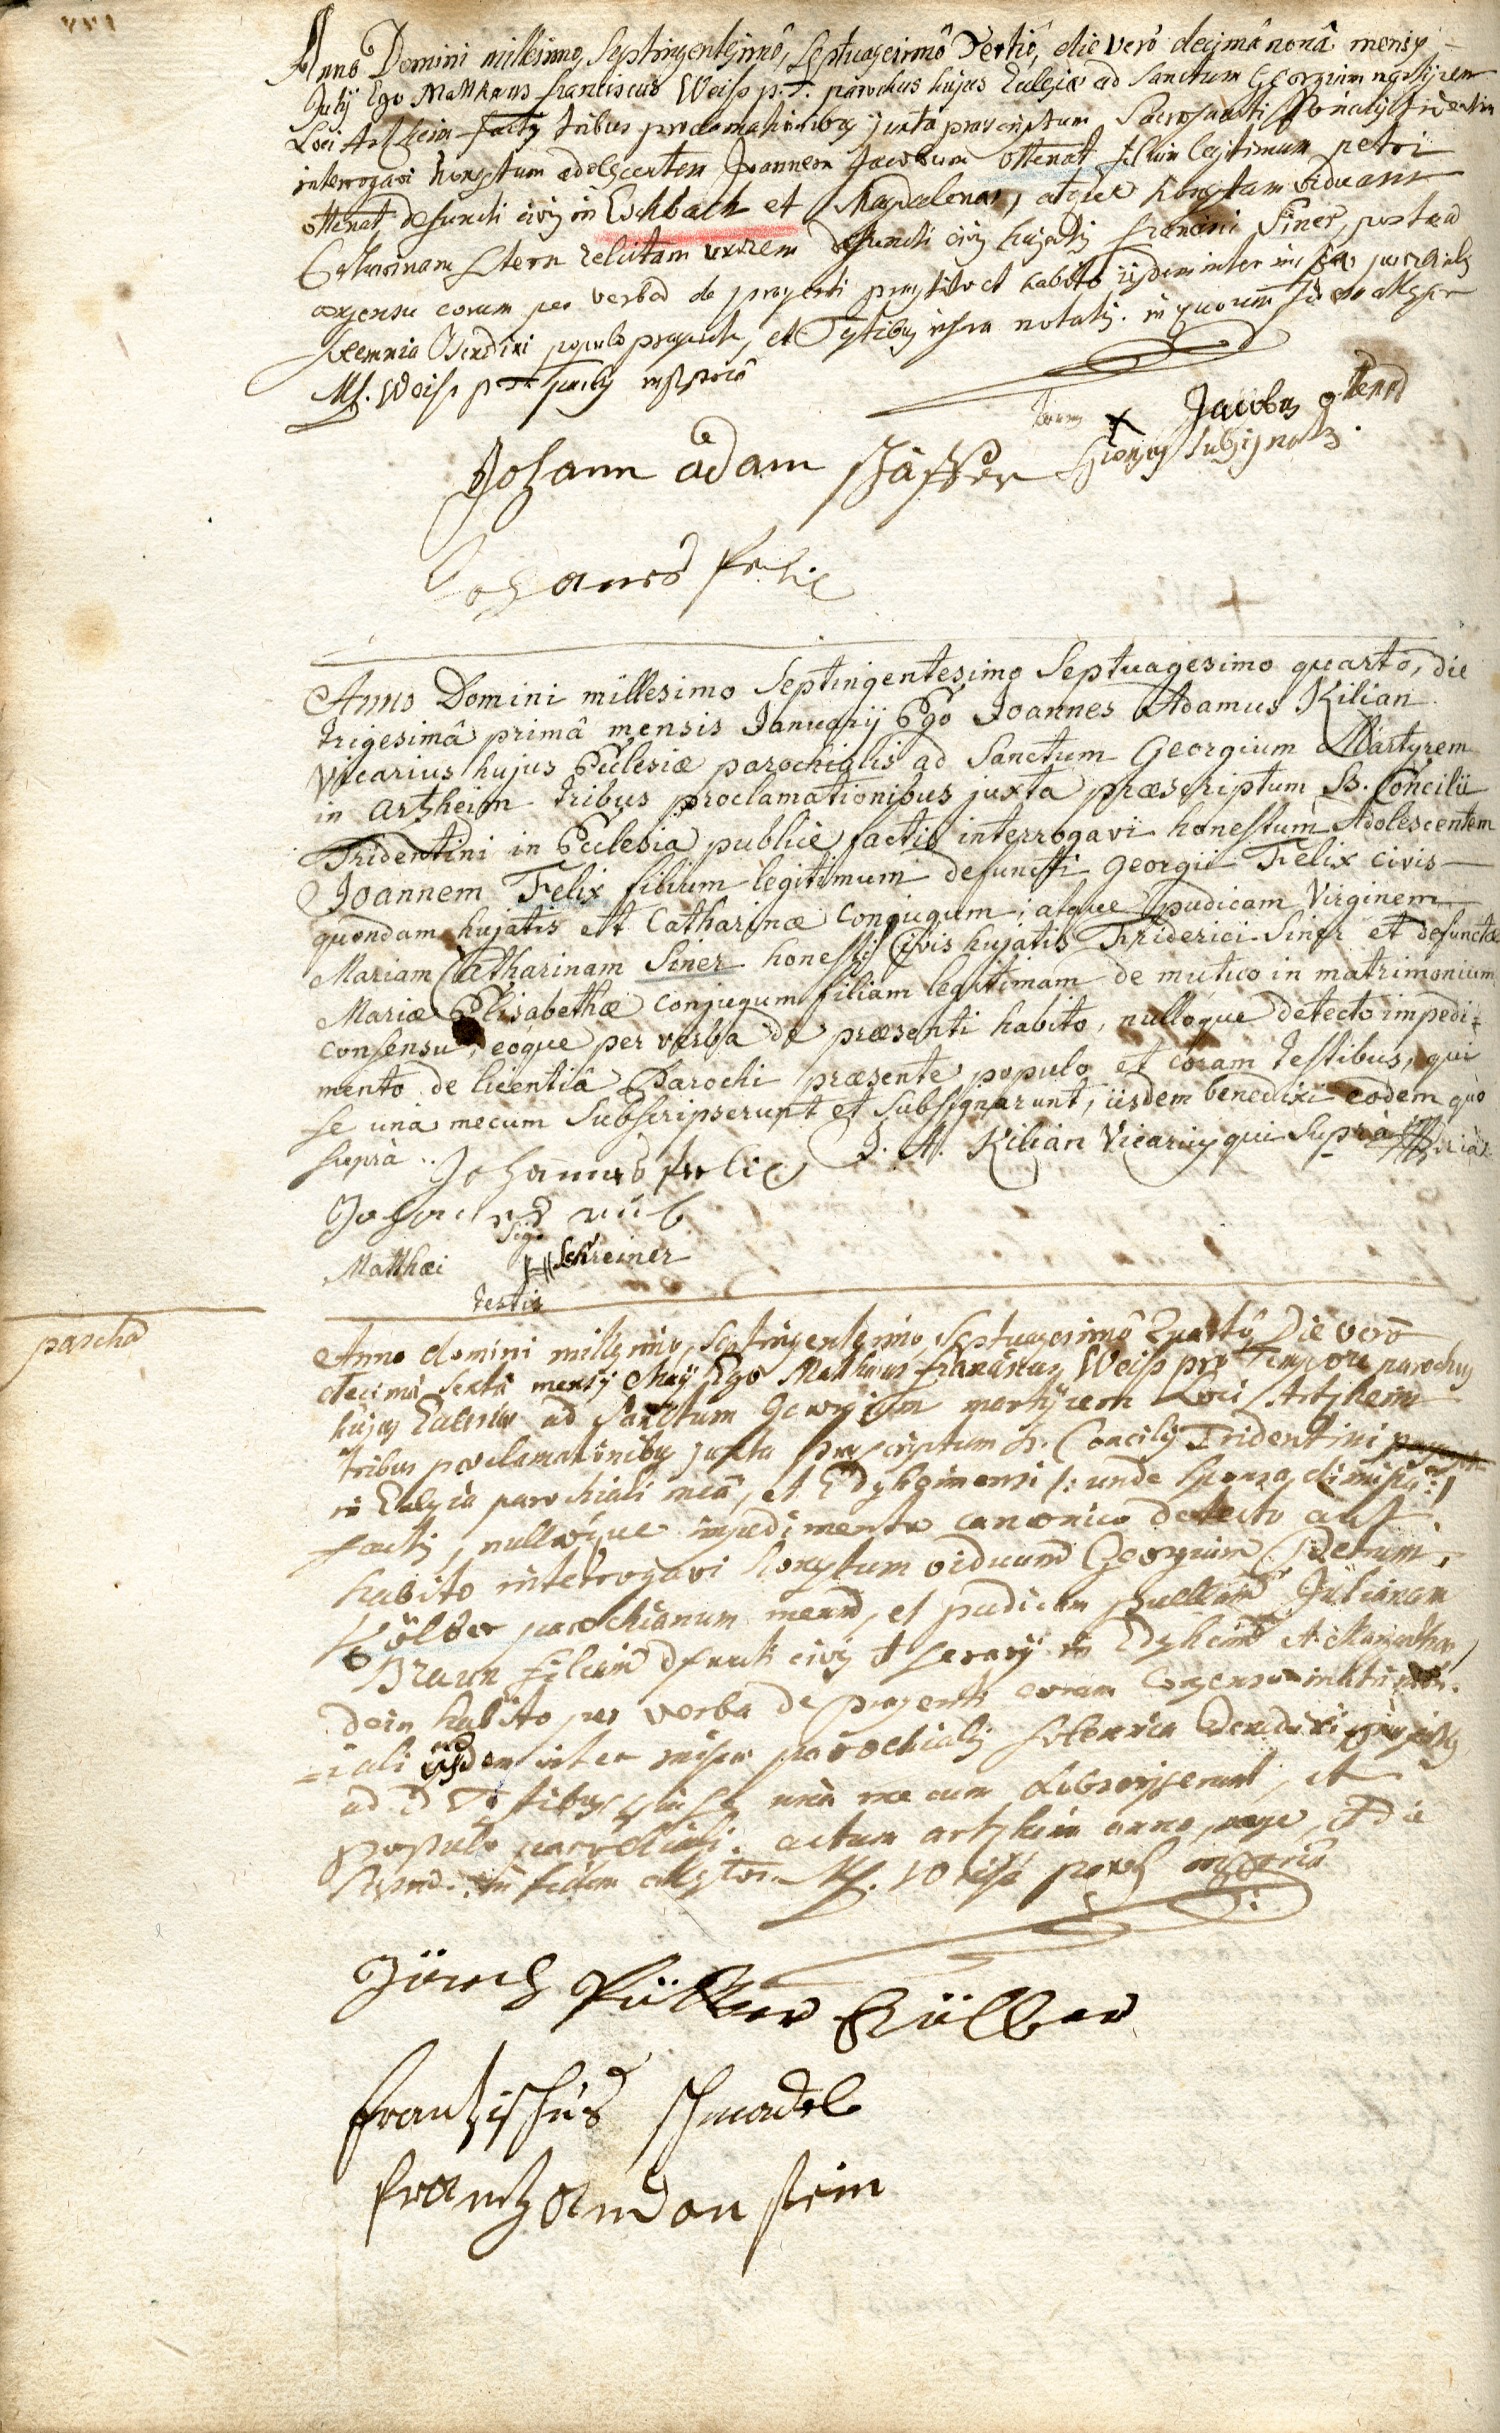 Anno Domini millesimo, Septingentesimô, Septuagesimô Tertiô, die verò decimâ nonâ mensis
Julij Ego Matthaeus franciscus Weiss p. T. parochus hujus Eulesiæ ad Sanctum Georgium
Loci Artzheim factis tribus proclamationibus juxta praescriptum Sacrosancti Concilij Tridentini
interrogavi honestum adolescentem Joannem Jacobum ottenat filium legitimum petri
ottenat defuncti civis in Eschbach et Magdalenae, atque honestam viduam
Catharinam Stern relictam uxorem defuncti civis hujatis francisci Siner, postea
consensu eorum per verba de praesenti habito iisdem inter
solemnia Benedixi populo praesente, et Testibus infra notatis. in quorum fidem
Mf. Weiss
Jacobus ottenad
Johann adam schäffer
Johanes felix
Anno Domini millesimo Septingentesimo Septuagesimo quarto, die
trigesimâ primâ mensis Januarij Ego Joannes Adamus Kilian
Vicarius hujus Eclesiæ parochialis ad Sanctum Georgium Martyrem
in artzheim tribus proclamationibus juxta præscriptum S. Concilii
Tridentini in Eclesia publice factis interrogavi honestum Adolescentem
Joannem Felix filium legitimum defuncti Georgii Felix civis
quondam hujatis et Catharinæ conjugum; atque pudicam Virginem
Mariam Catharinam Siner honesti Civis hujatis Friderici Siner et defunctæ
Mariæ Elisabethæ conjugum filiam legitimam de mutuo in matrimonium
consensu, eóque per verba de præsenti habito, nullóque detecto impedi-
mento de licentiâ Parochi præsente populo et coram testibus, qui
se una mecum Subscripserunt et Subsignarunt, iisdem benedixi eodem quò
suprà.. J. A. Kilian Vicarius qui Suprà
Johannes felix
Matthæi Sig. Schreiner
testis
pascha
Anno domini millesimo, Septingentesimo, Septuagesimô Quartô Die verò
decimâ sextâ mensis Maij Ego Matthaeus franciscus Weiss pro Tempore parochus
hujus Eulesiæ ad Sanctum Georgium martyrem Loci Artzheim
tribus proclamationibus juxta praescriptum S. Concilij Tridentini
in Eulesia parochiali meâ, et Edesheimensi /: unde Sponsa dimissa :/
factis, nulloque impedimento canonico detecto aut
habito interrogavi honestum viduum Georgium Petrum
Kölber parochianum meum, et pudicam puellam Julianam
Braun filiam defuncti civis in Edesheim
dein habito per verba de praesenti eorum consensu
-iali iisdem inter missae parochialis solemnia Benedixi
ad id Testibus, qui se unà mecum subscripserunt, et
populo parochiali. actum artzheim anno, mense, et Die
in fidem Mf. Weiss
Jörch Külber
frantzishus schmadel
frantz andon stein